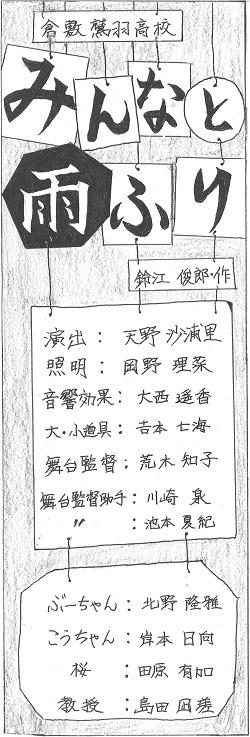 倉敷鷲羽高校
みんなと
雨ふり
鈴江 俊郎・作
演出： 天野 沙浦里
照明： 岡野 理菜
音響効果： 大西 遥香
大・小道具： 吉本 七海
舞台監督： 荒木 知子
舞台監督助手： 川崎 泉
〃 ： 池本 夏紀
ぶーちゃん： 北野 隆雅
こうちゃん： 岸本 日向
桜 ： 田原 有加
教授 ： 島田 凪瑳